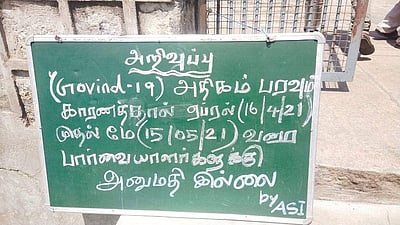 அறிவுப்பு
(Govind-19) அதிகம் பரவும்
காரணத்தால் ஏப்ரல் (16/4/21)
முதல் மே (15/05/21) வரை
பார்வையாளர்களுக்கு
அனுமதி இல்லை
by ASI